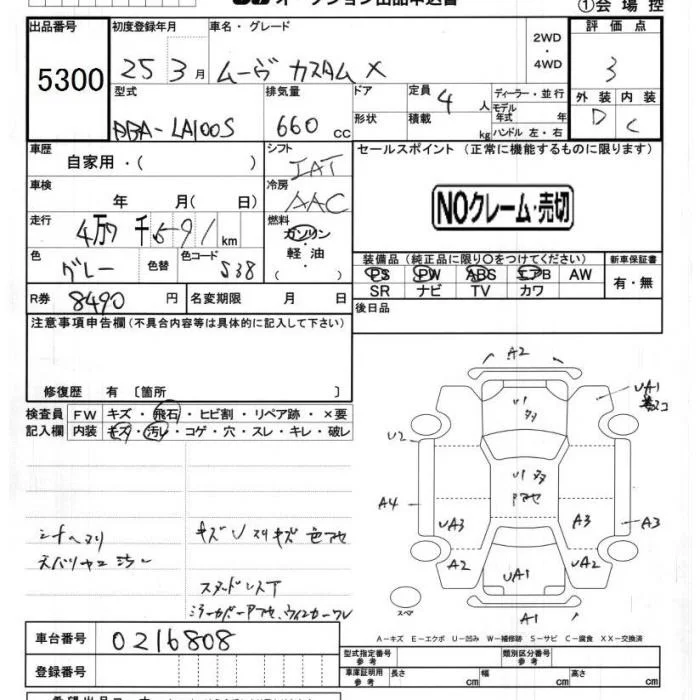 オークション出品申込書 ①会場控
出品番号 初度登録年月 車名・グレード 評価点
5300 25 3月 ムーヴ カスタム X 2WD・4WD 3
型式 排気量 ドア 定員 ディーラー・並行 外装 内装
DBA-LA100S 660 cc 形状 4人 積載 kg モデル年式 年 ハンドル 左・右 D C
車歴 シフト セールスポイント (正常に機能するものに限ります)
自家用・( ) IAT
車検 冷房
年 月( 日) AAC NOクレーム・売切
走行 燃料
4万 千 591 km ガソリン・軽油・( )
色 色替 色コード 装備品 (純正品に限り○をつけてください) 新車保証書
グレー S38 PS PW ABS エアB AW 有・無
R券 8490 円 名変期限 月 日 SR ナビ TV カワ
後日品
注意事項申告欄 (不具合内容等は具体的に記入して下さい)
修復歴 有 〔箇所 〕
検査員 FW キズ・飛石・ヒビ割・リペア跡・×要
記入欄 内装 キズ・汚レ・コゲ・穴・スレ・キレ・破レ
A2
UA1
U2
A4
UA3
A3
A3
A2
UA2
UA1
A1
スペア
シートヘタリ
キズ U スリキズ 色アセ
スタッドレス下
ミラーカバーアセ、ウインカーワレ
A-キズ E-エクボ U-凹み W-補修跡 S-サビ C-腐食 XX-交換済
車台番号 0216808
型式指定番号 参考 類別区分番号 参考
登録番号 車庫証明用 参考 長さ cm 幅 cm 高さ cm
希望出品コーナー